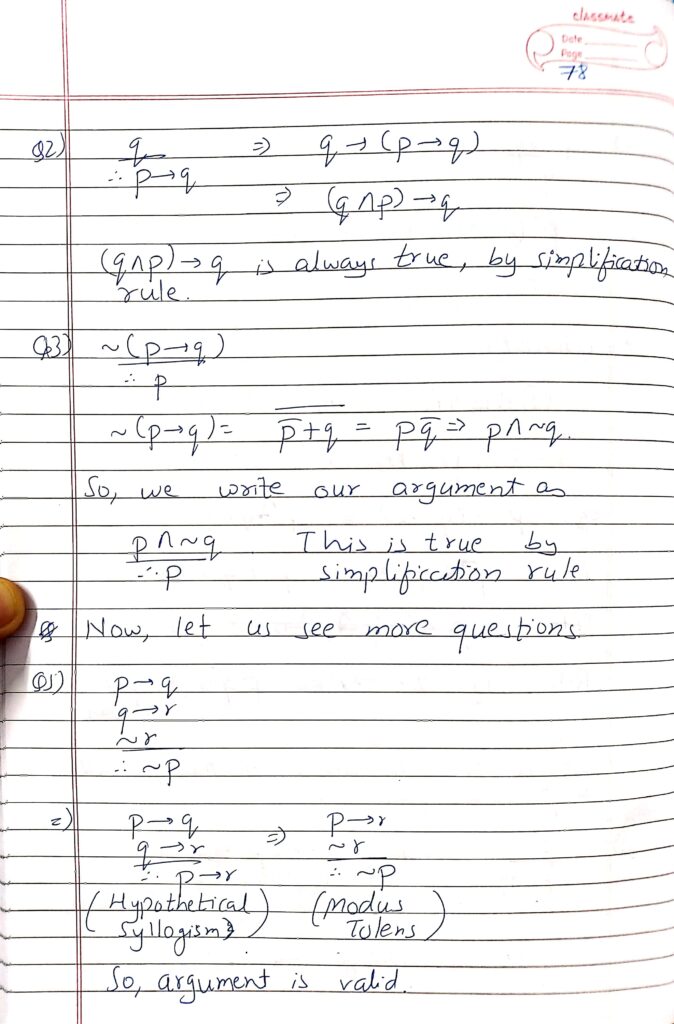 classmate
Date
Page
78
Q2) q ⇒ q → (p → q)
∴ p → q
⇒ (q ∧ p) → q
(q ∧ p) → q is always true, by simplification
rule.
Q3) ~(p → q)
∴ p
~(p → q) = \overline{\overline{p} + q} = p\overline{q} ⇒ p ∧ ~q.
So, we write our argument as
p ∧ ~q This is true by
∴ p simplification rule
Now, let us see more questions.
Q1) p → q
q → r
~r
∴ ~p
=) p → q ⇒ p → r
q → r ~r
∴ p → r ∴ ~p
(Hypothetical (Modus
Syllogism) Tolens)
So, argument is valid.